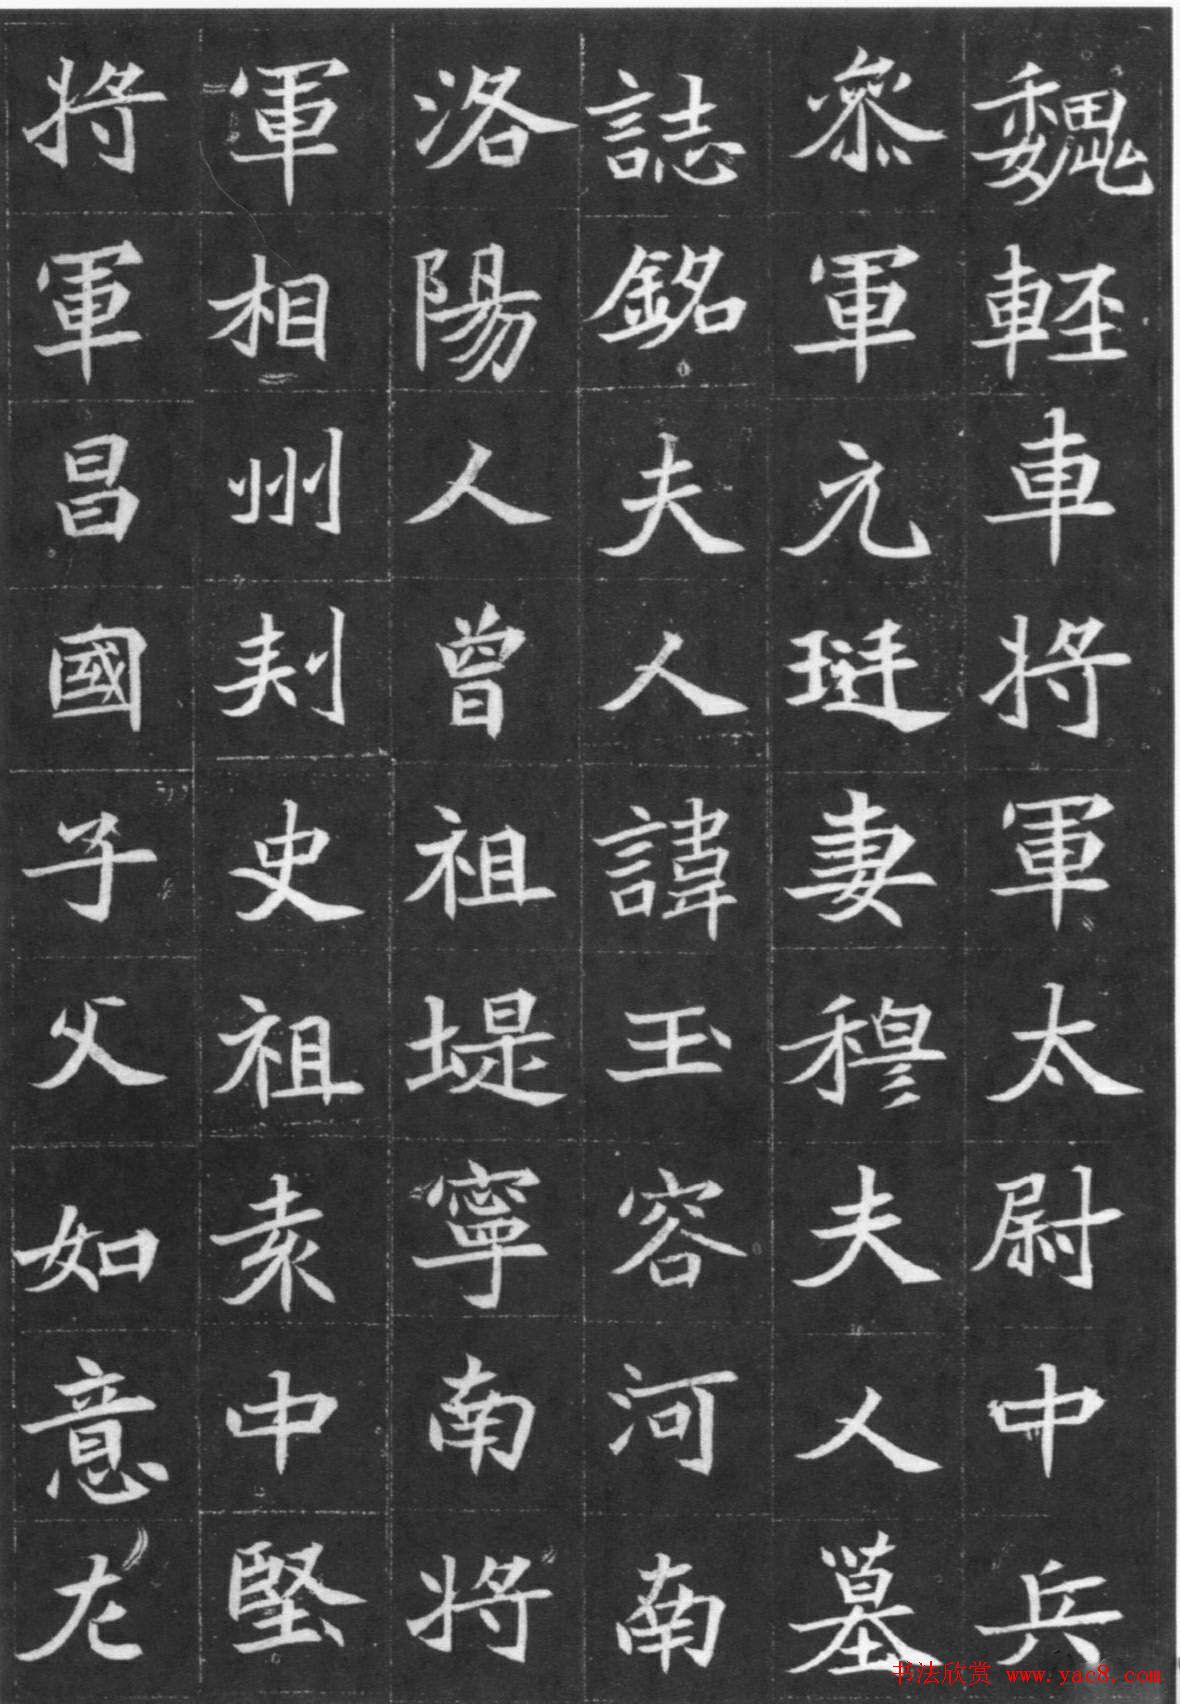 魏輕車將軍太尉中兵
參軍元珽妻穆夫人墓
誌銘夫人諱玉容河南
洛陽人曾祖堤寧南將
軍相州刺史祖袁中堅
將軍昌國子父如意左
书法欣赏 www.yac8.com